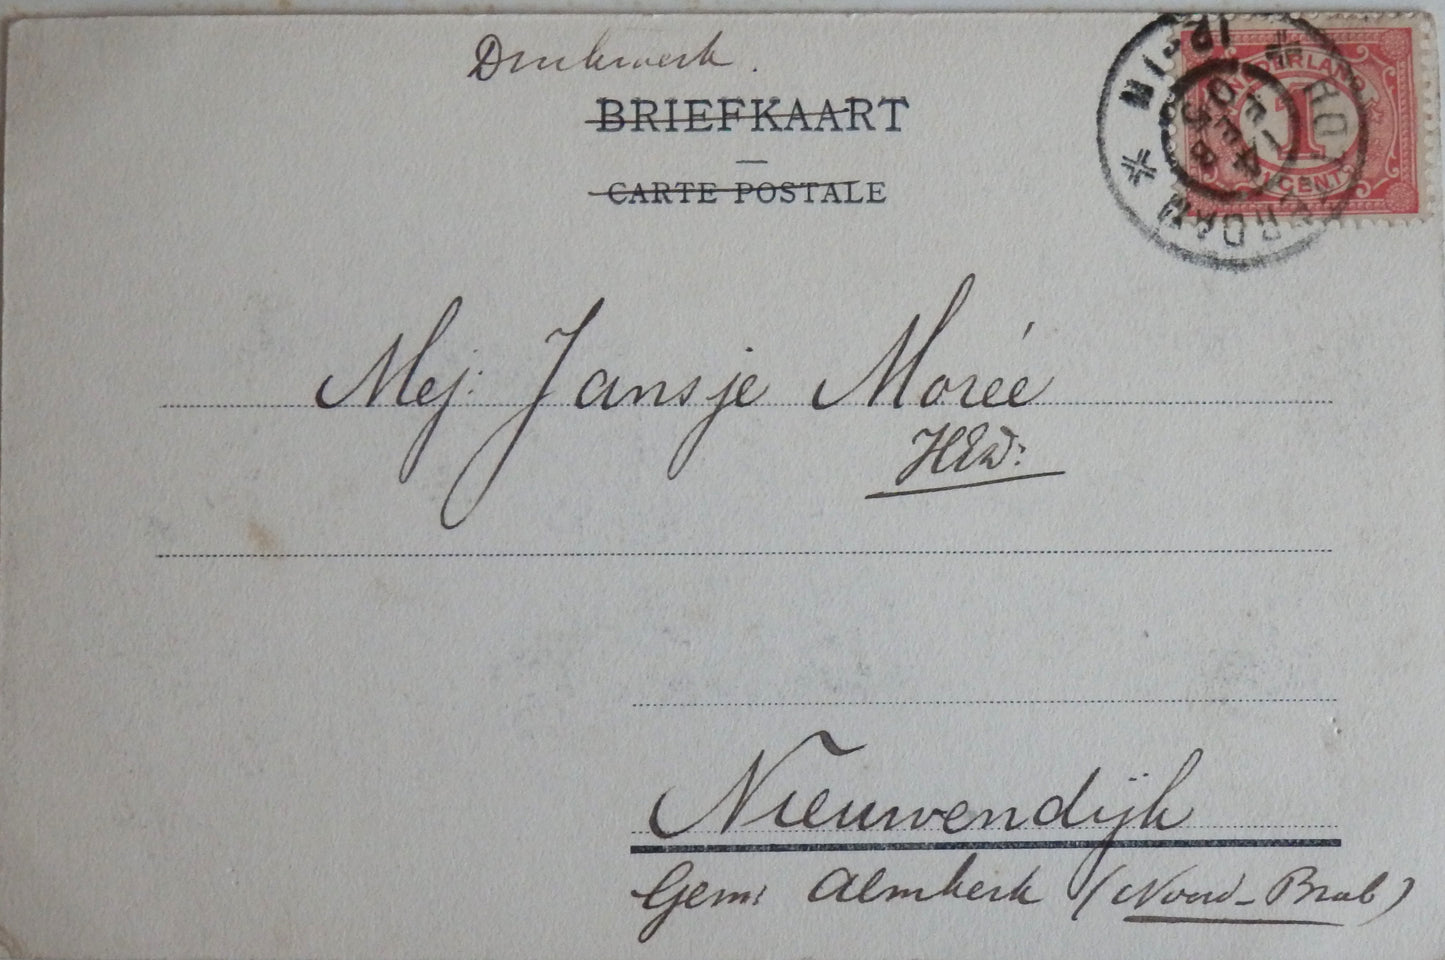 Drukwerk.
BRIEFKAART
CARTE POSTALE
NEDERLAND
1
CENT
ROTTERDAM
14 FEB 05
Mej: Jansje Morée
HEd:
Nieuwendijk
Gem: Almkerk (Noord-Brab)